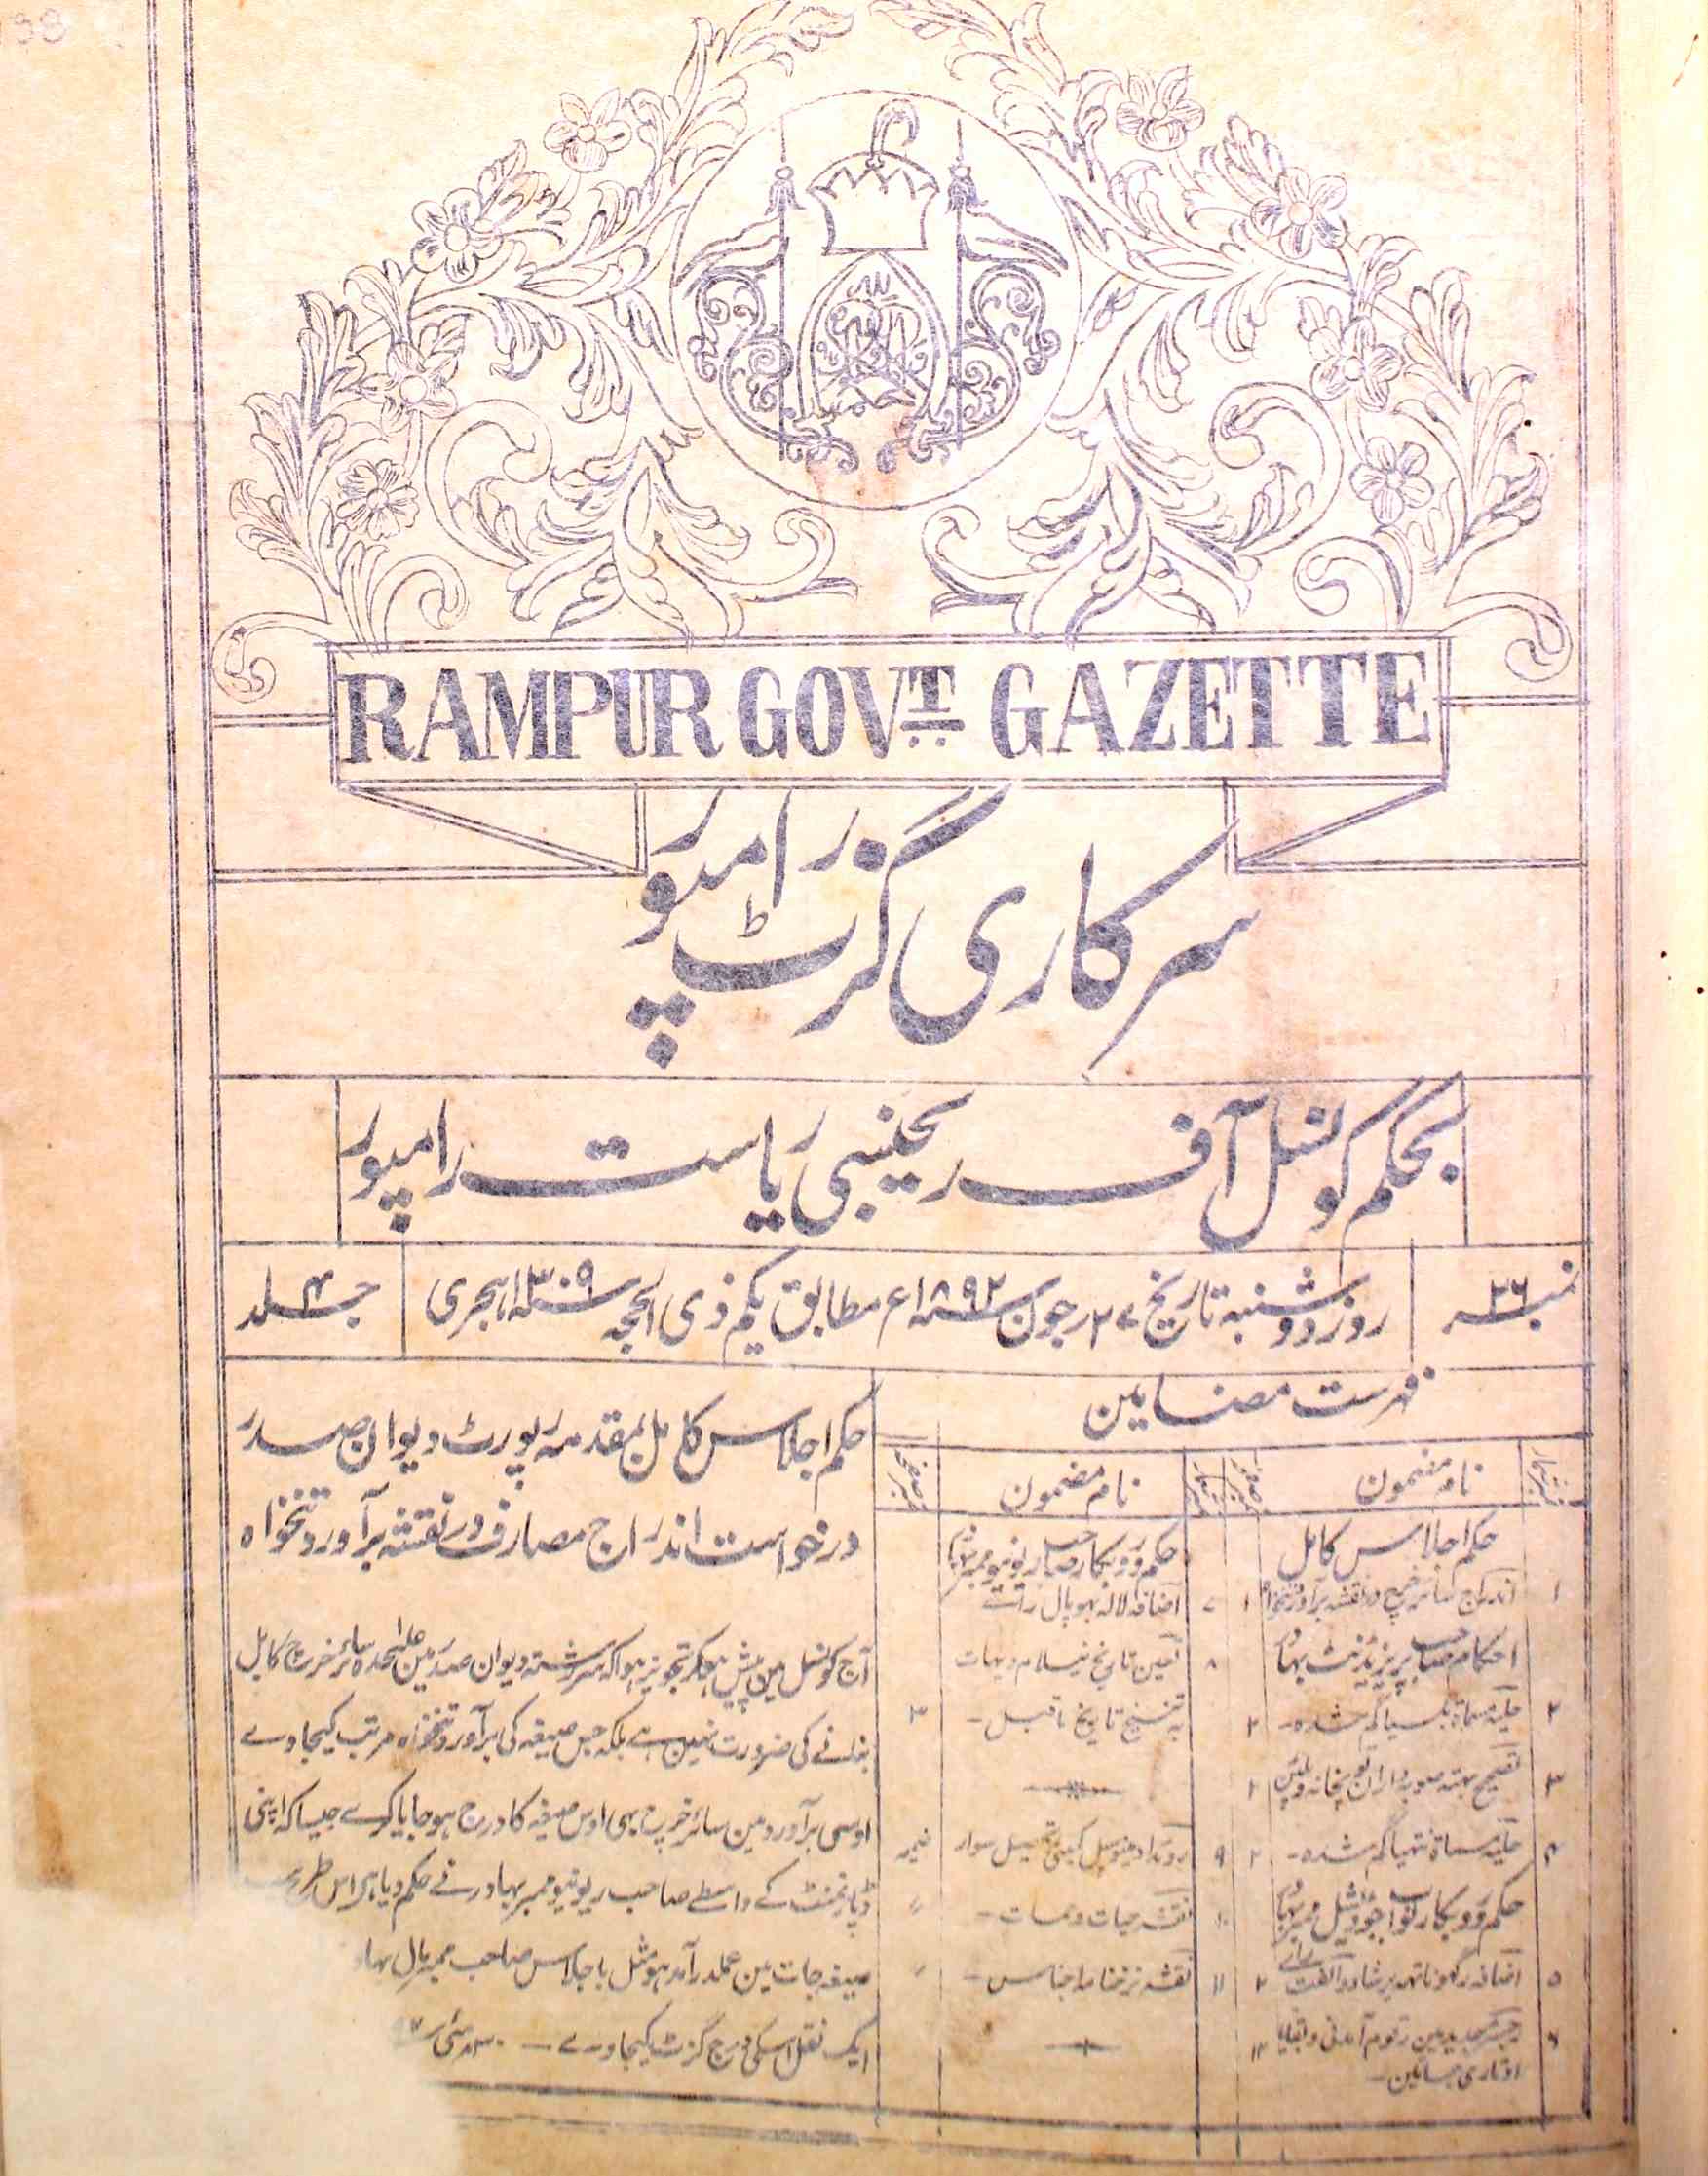 RAMPUR GOVT. GAZETTE
سرکاری گزٹ رامپور
بحکم کونسل آف ریجنسی ریاست رامپور
نمبر ۲۶
روز دو شنبہ تاریخ ۲۷ جون سنہ ۱۸۹۲ع مطابق یکم ذی الحجہ سنہ ۱۳۰۹ ہجری
جلد ۴
فہرست مضامین
نام مضمون
حکم اجلاس کامل
۱ اندراج سائر خرچ در نقشہ برآورد تنخواہ ۱
احکام صاحب پریزیڈنٹ بہادر
۲ حلیہ مسماۃ گم شدہ - ۲
۳ تصحیح صوبہ داران توپخانہ و پلٹن ۲
۴ حلیہ مسماۃ گم شدہ - ۲
حکم روبکار جوڈیشل ممبر بہادر
۵ اضافہ رگھوناتھ پرشاد ۲
۶ رقوم آمدنی و بقایا
نام مضمون
حکم روبکار صاحب ریونیو ممبر بہادر
۷ اضافہ لالہ بھوپال
۸ تعین تاریخ نیلام دیہات
بہ تنسیخ تاریخ ماقبل - ۳
۹ روئداد میونسپل کمیٹی تحصیل سوار ضمیمہ
۱۰ نقشہ حیات و ممات - "
۱۱ نقشہ نرخنامہ اجناس - "
حکم اجلاس کامل بمقدمہ رپورٹ دیوان صدر
درخواست اندراج مصارف در نقشہ برآورد تنخواہ
آج کونسل مین پیش ہوکر تجویز ہوا کہ سررشتہ دیوان صدر مین علیحدہ سائر خرچ کا بل
بنانے کی ضرورت نہین ہے بلکہ جس صیغہ کی برآورد تنخواہ مرتب کیجاوے
اوسی برآورد مین سائر خرچ بھی اوس صیغہ کا درج ہو جایا کرے جیسا کہ اپنی
ڈپارٹمنٹ کے واسطے صاحب ریونیو ممبر بہادر نے حکم دیا ہے اس طرح
صیغہ جات مین عملدرآمد ہو مثل باجلاس صاحب ممبر مال
ایک نقل اسکی درج گزٹ کیجاوے -